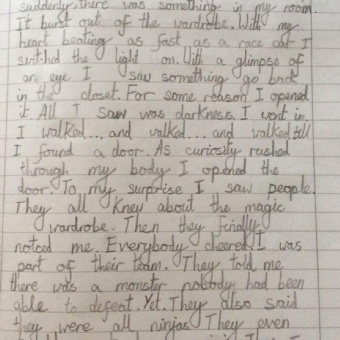 suddenly, there was something in my room.
It burst out of the wardrobe. With my
heart beating as fast as a race car I
switched the light on. With a glimpse of
an eye I saw something go back
in the closet. For some reason I opened
it. All I saw was darkness. I went in.
I walked... and walked... and walked till
I found a door. As curiosity rushed
through my body I opened the
door. To my surprise I saw people.
They all knew about the magic
wardrobe. Then they finally
noticed me. Everybody cheered. I was
part of their team. They told me
there was a monster nobody had been
able to defeat. Yet. They also said
they were all ninjas. They even